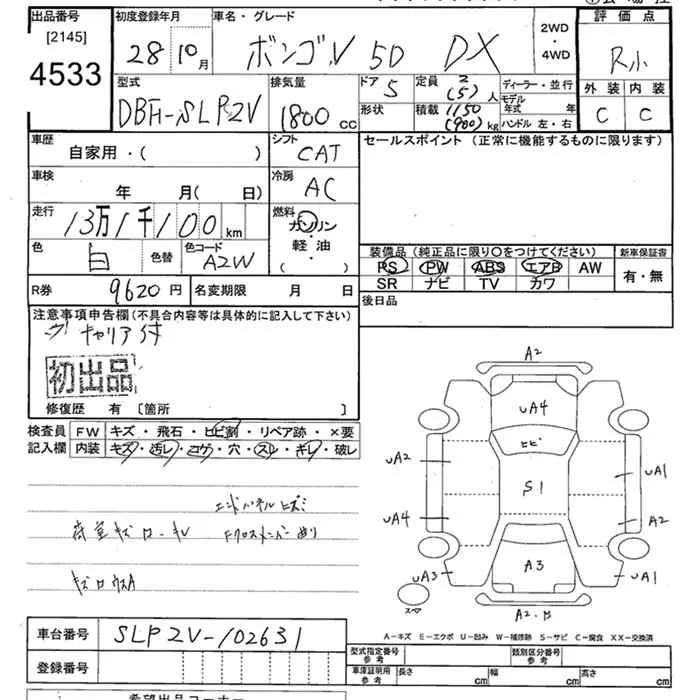 出品番号 [2145] 4533
初度登録年月 28 10月
車名・グレード ボンゴV 5D DX
2WD・4WD
評価点 R小
外装 内装
C C
型式 DBF-SLP2V
排気量 1800 cc
ドア 5
定員 2(5)人
形状
積載 1150(900)kg
ディーラー・並行
モデル年式 年
ハンドル 左・右
車歴 自家用・( )
シフト CAT
セールスポイント (正常に機能するものに限ります)
車検 年 月( 日)
冷房 AC
走行 13万1千100 km
燃料 ガソリン・軽油・( )
色 白 色替
色コード A2W
装備品 (純正品に限り〇をつけてください)
新車保証書
PS PW ABS エアB AW
有・無
SR ナビ TV カワ
R券 9620円
名変期限 月 日
後日品
注意事項申告欄(不具合内容等は具体的に記入して下さい)
キャリア付
初出品
修復歴 有 [箇所 ]
検査員 FW キズ・飛石・ヒビ割・リペア跡・×要
記入欄 内装 キズ・汚レ・コゲ・穴・スレ・ギレ・破レ
エンドパネルヒズミ
荷室キズ
Fクロスメンバー曲り
A2
UA4
ヒビ
UA2
S1
UA1
UA4
A2
A3
UA3
UA1
スペア
A2・B
A−キズ E−エクボ U−凹み W−補修跡 S−サビ C−腐食 XX−交換済
車台番号 SLP2V-102631
型式指定番号 参考
類別区分番号 参考
登録番号
車庫証明用 参考 長さ cm 幅 cm 高さ cm
希望出品コーナー